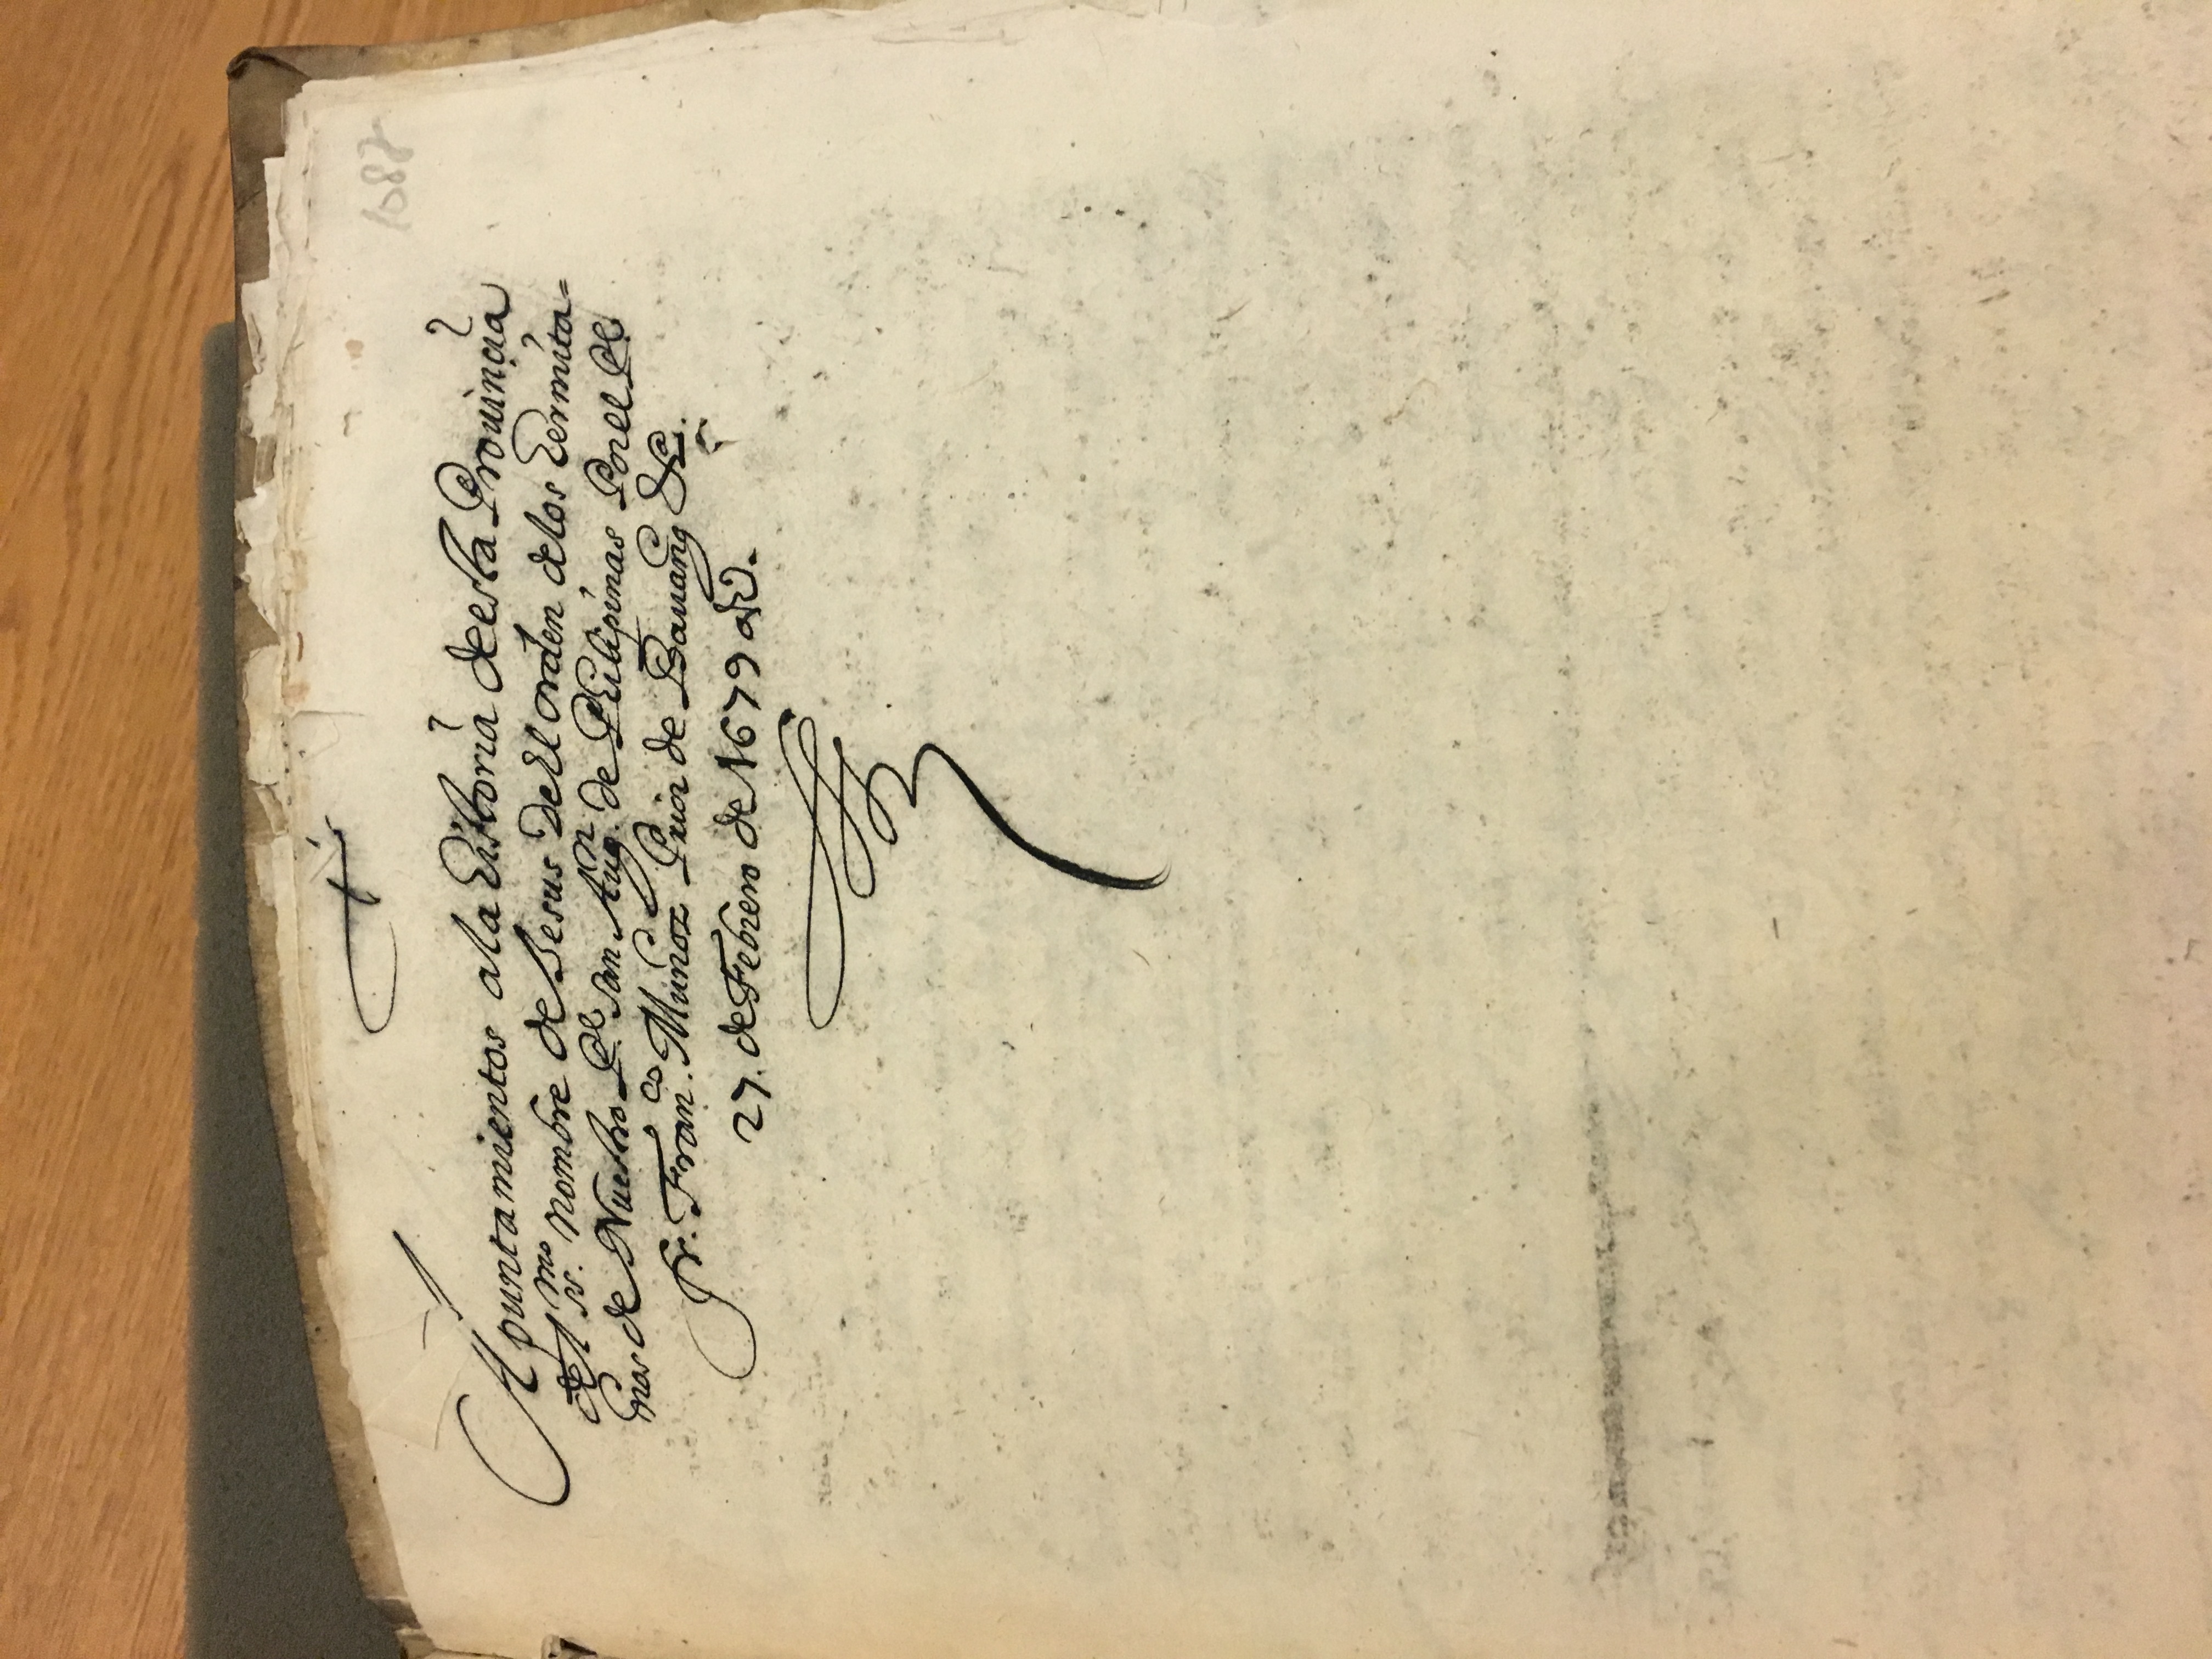 1087
Apuntamientos a la Historia de esta Prouinçia
del ss.mo Nombre de Jesus De El orden de los Hermita=
ños de Nuestro P.e San Aug.n de Philipinas Por el P.e
fr. Fran.co Muñoz Prior de Bauang &c.
27. de Febrero de 1679 as.